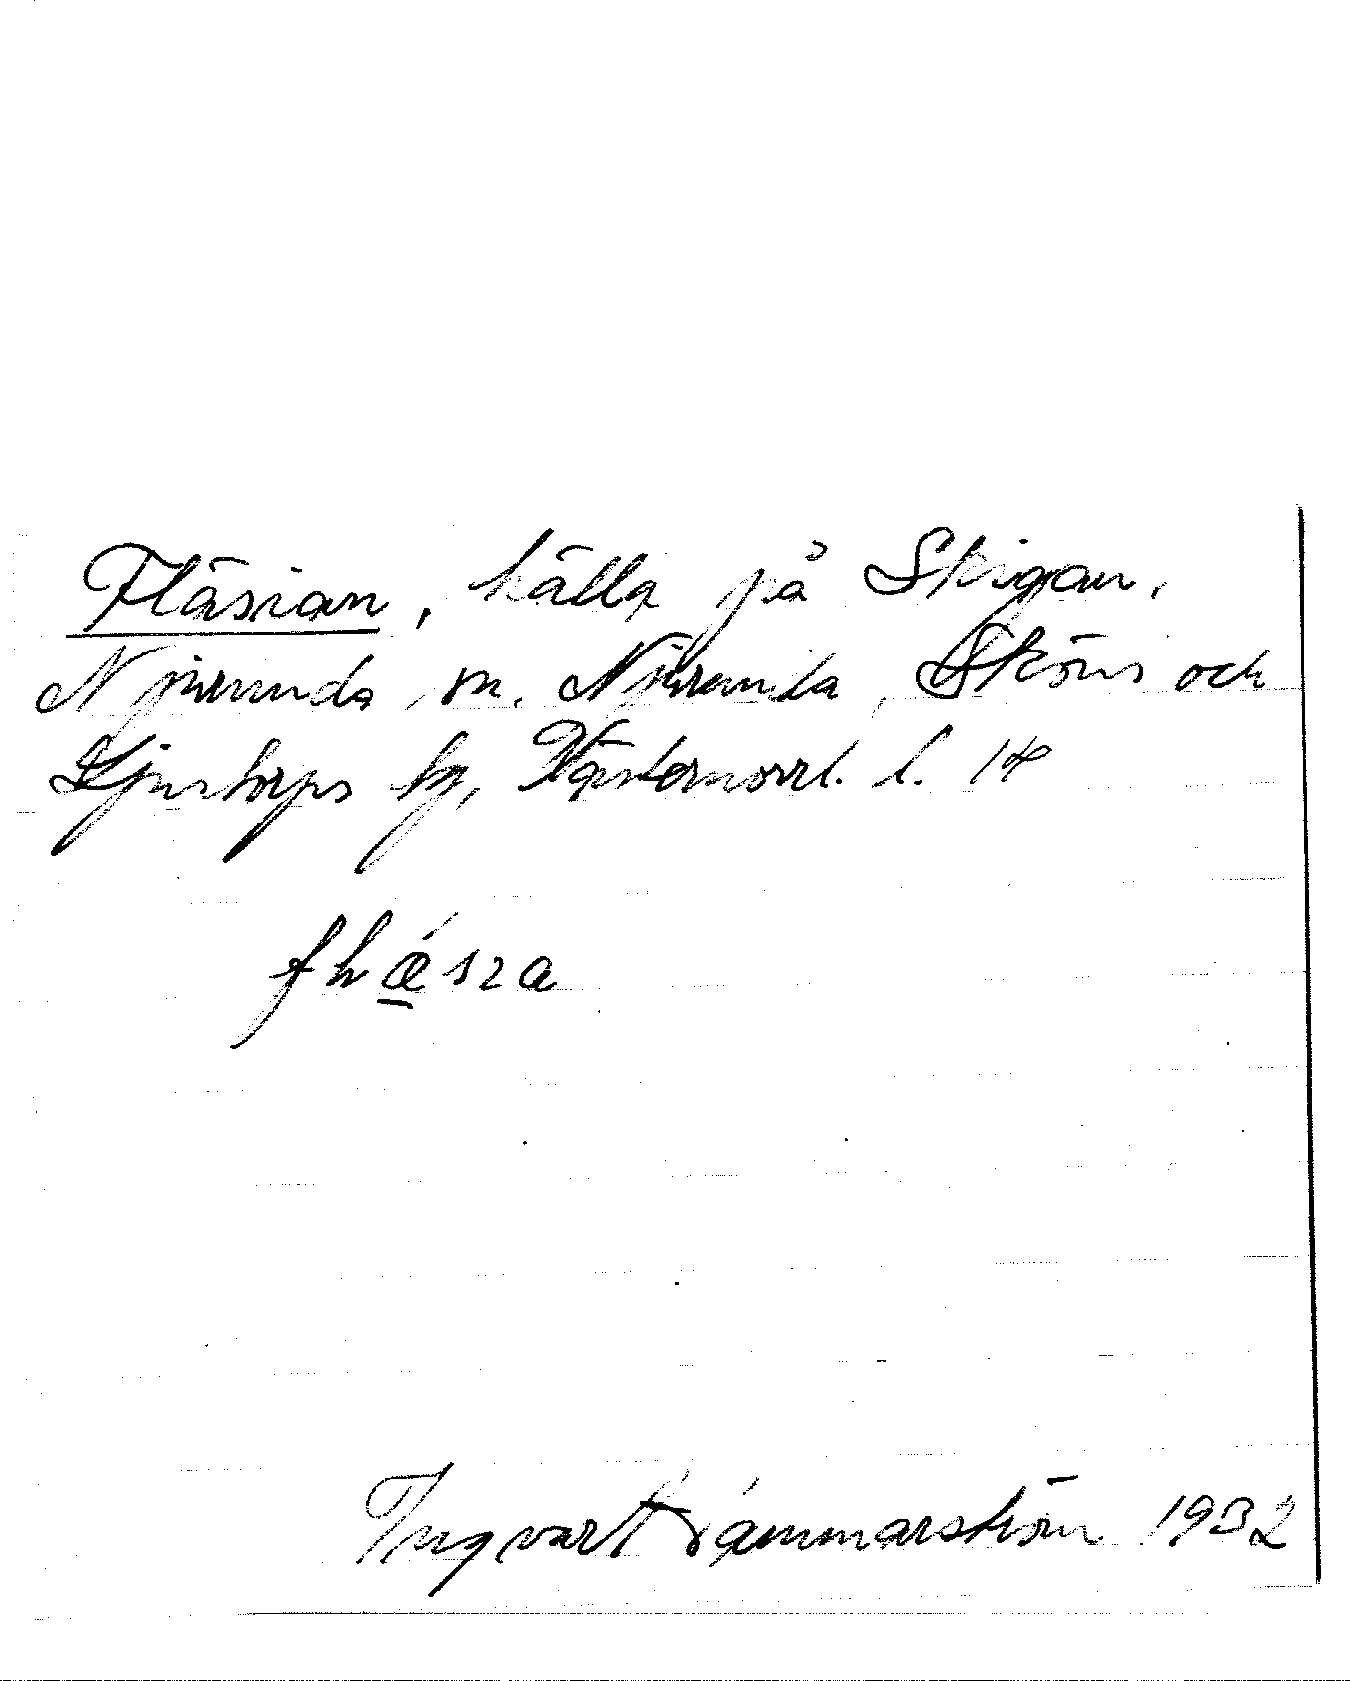 Fläsian, källa på Skigan.
Njurunda sn. Njurunda, Sköns och
Ljustorps tg, Västernorrl. l. 14
fhǽsɩa
Ingvart Hammarström 1932